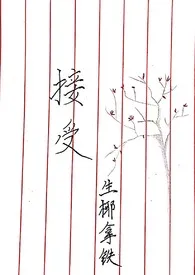 接受
生椰拿铁